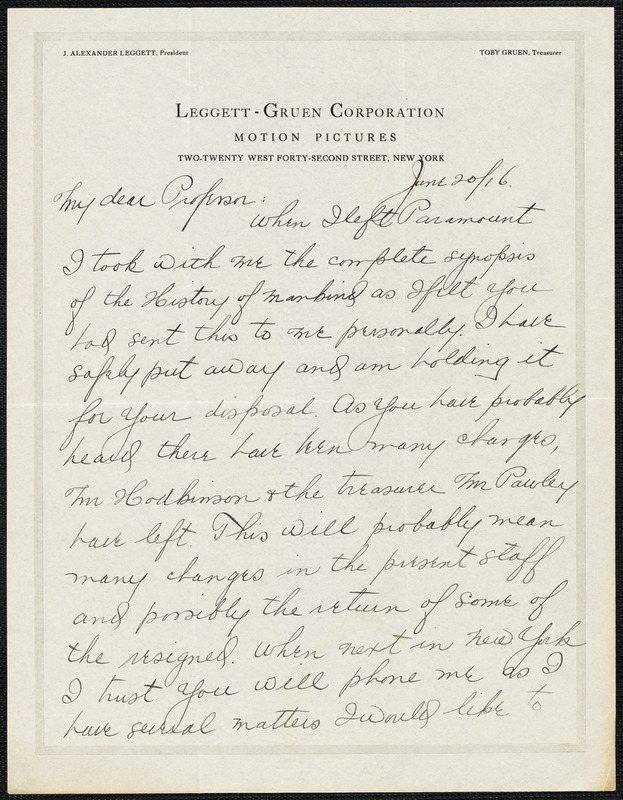 J. ALEXANDER LEGGETT, President
TOBY GRUEN, Treasurer
LEGGETT-GRUEN CORPORATION
MOTION PICTURES
TWO-TWENTY WEST FORTY-SECOND STREET, NEW YORK
June 20/16.
My dear Professor:
When I left Paramount
I took with me the complete synopsis
of the History of Mankind as I felt you
had sent this to me personally. I have
safely put away and am holding it
for your disposal. As you have probably
heard there have been many changes,
Mr Hodkinson & the treasurer Mr Pawley
have left. This will probably mean
many changes in the present staff
and possibly the return of some of
the resigned. When next in New York
I trust you will phone me as I
have several matters I would like to